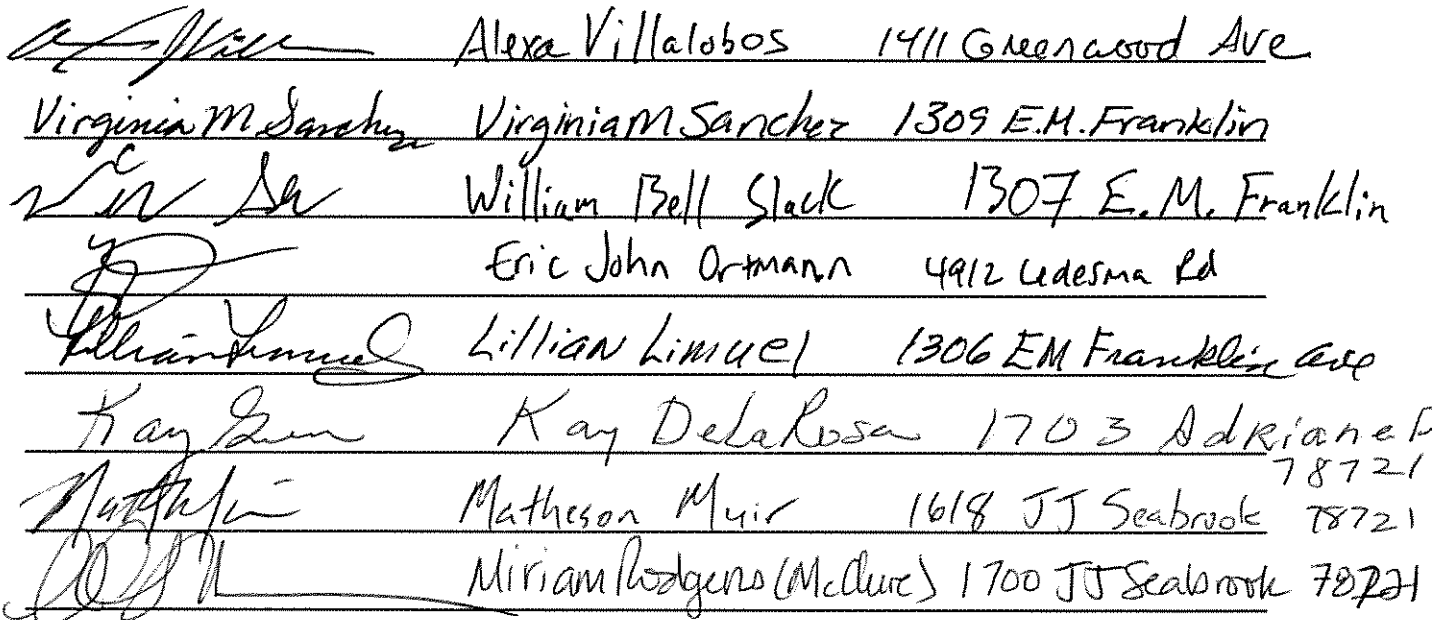 Alexa Villalobos 1411 Greenwood Ave
Virginia M Sanchez Virginia M Sanchez 1309 E.M. Franklin
William Bell Slack 1307 E. M. Franklin
Eric John Ortmann 4912 Ledesma Rd
Lillian Limuel Lillian Limuel 1306 EM Franklin Ave
Kay Kay DeLaRosa 1703 Adriane
78721
Matheson Muir 1618 JJ Seabrook 78721
Miriam Rodgers (McClure) 1700 JJ Seabrook 78721